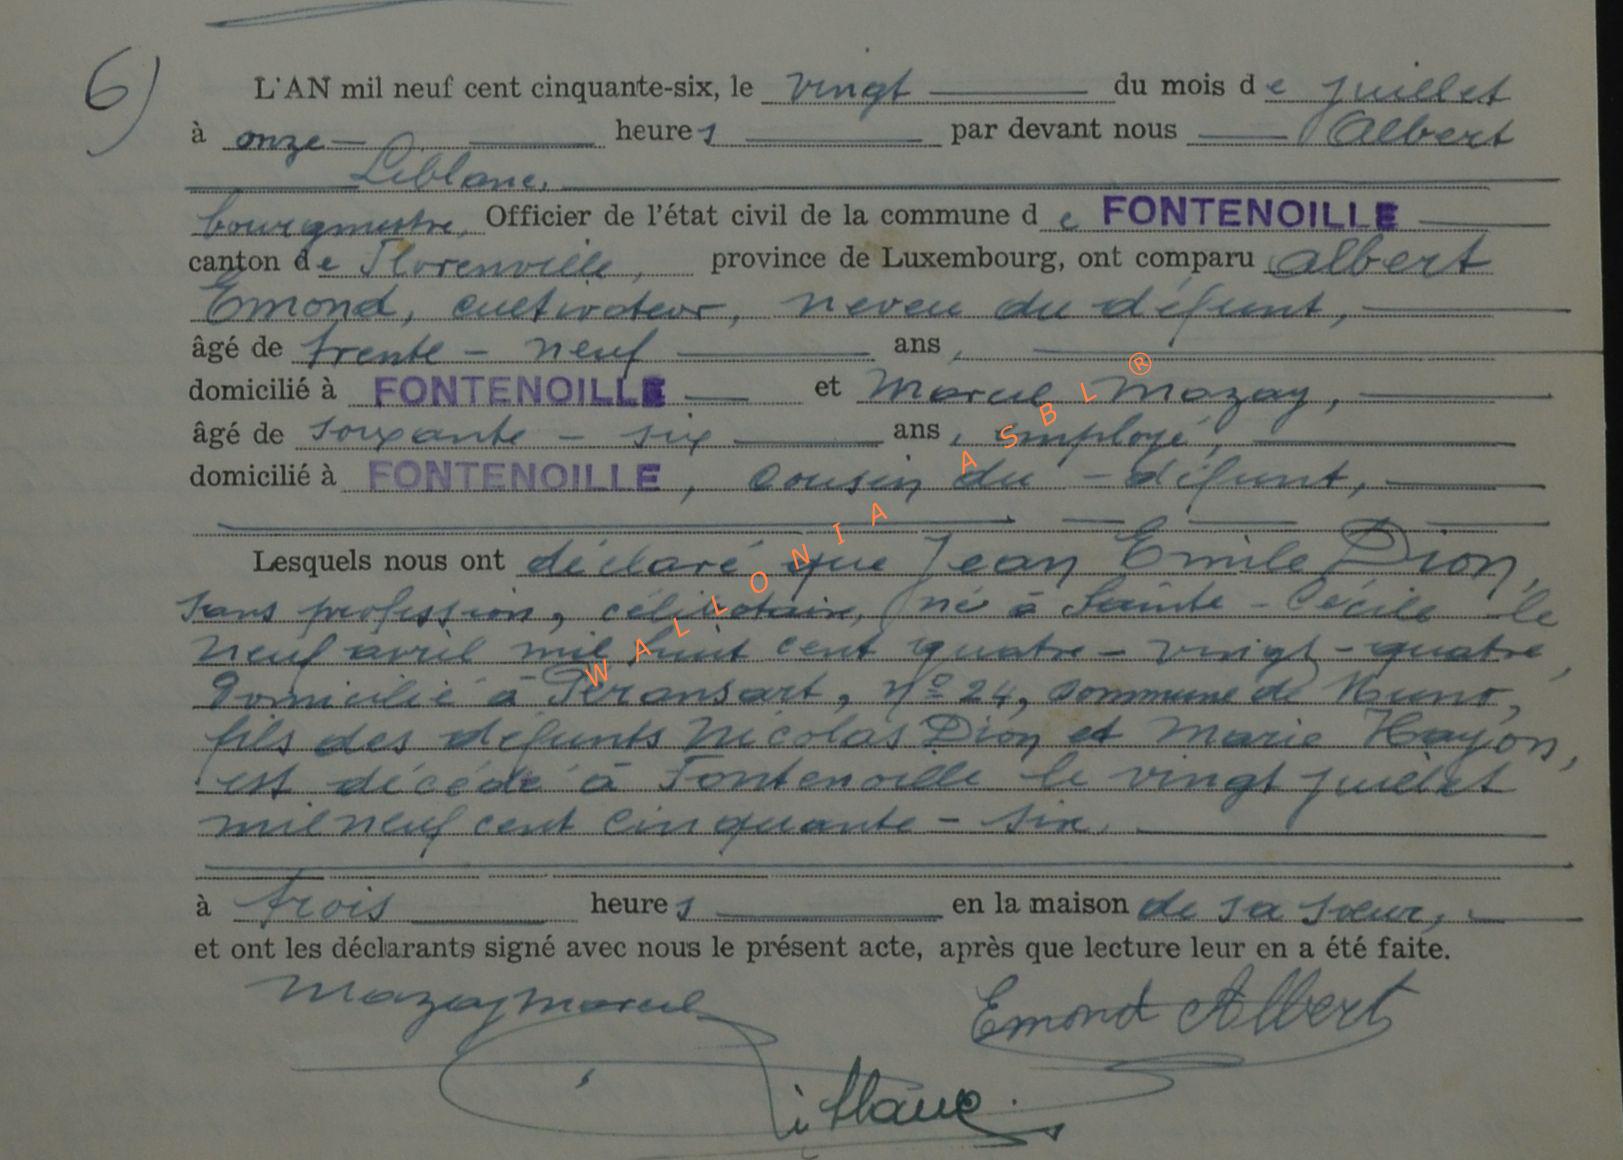 6)
L'AN mil neuf cent cinquante-six, le vingt du mois de juillet
à onze heures par devant nous Albert
Leblanc,
bourgmestre, Officier de l'état civil de la commune de FONTENOILLE
canton de Florenville, province de Luxembourg, ont comparu Albert
Emond, cultivateur, neveu du défunt,
âgé de trente - neuf ans,
domicilié à FONTENOILLE et Marcel Mazay,
âgé de soixante - six ans, employé,
domicilié à FONTENOILLE, cousin du défunt,
Lesquels nous ont déclaré que Jean Emile Dion,
sans profession, célibataire, né à Sainte - Cécile le
neuf avril mil huit cent quatre - vingt - quatre,
domicilié à , n° 24, commune de Muno,
fils des défunts Nicolas Dion et Marie Hayon,
est décédé à Fontenoille le vingt juillet
mil neuf cent cinquante - six.
à trois heures en la maison de sa sœur,
et ont les déclarants signé avec nous le présent acte, après que lecture leur en a été faite.
Mazay Marcel Emond Albert
Leblanc.
WALLONIA ASBL ®